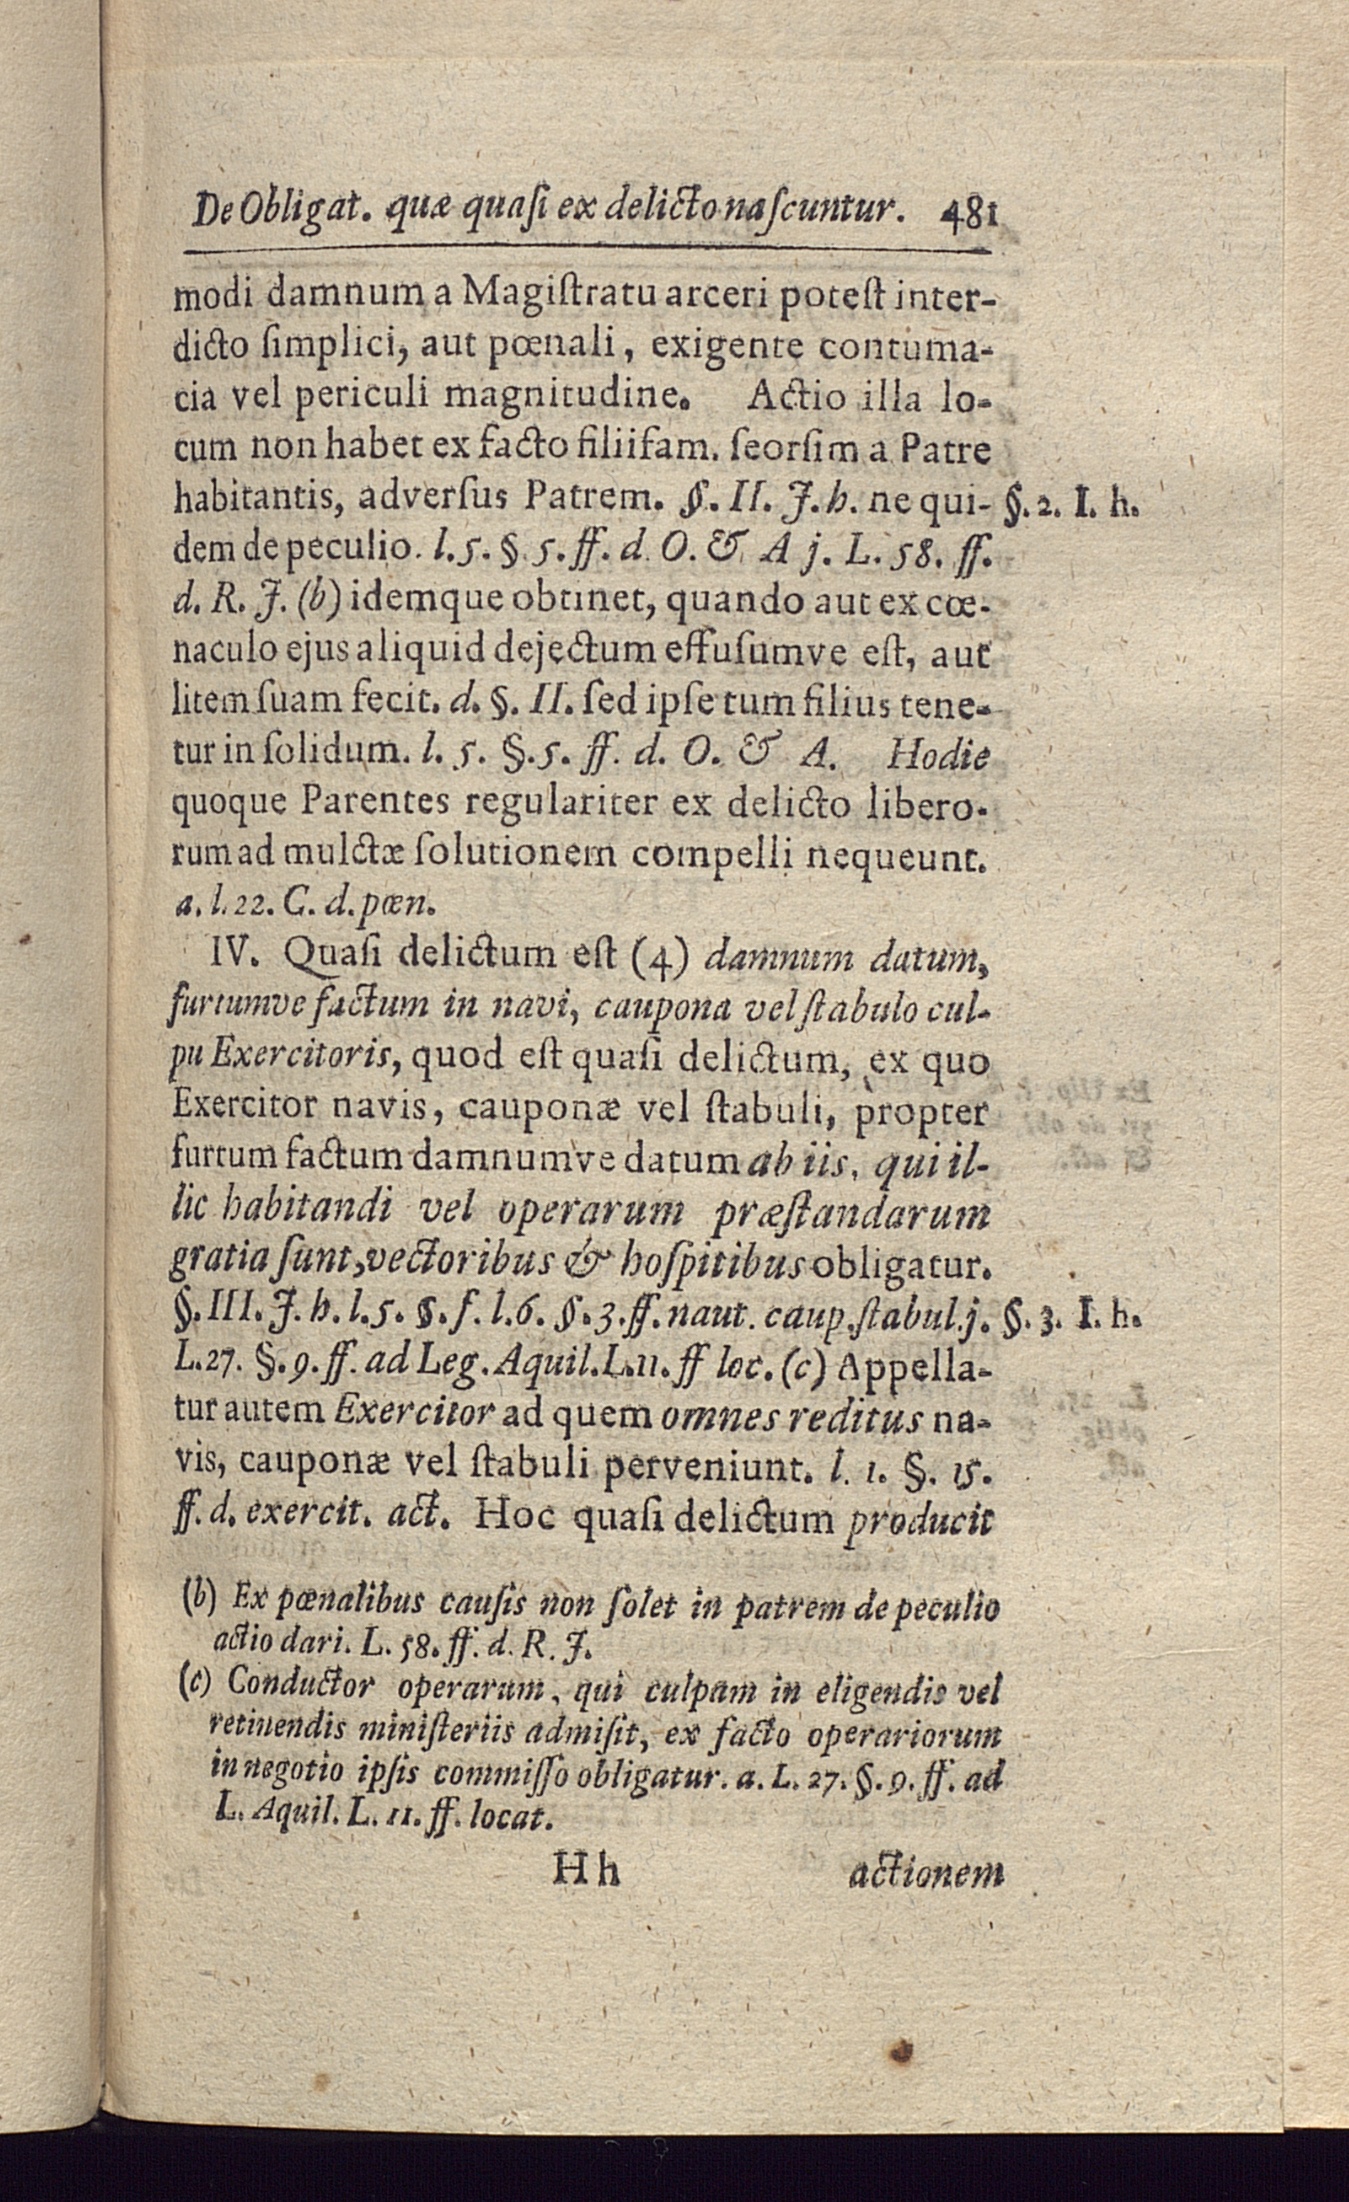 De Obligat. quæ quaſi ex delicto naſcuntur. 481
modi damnum a Magiſtratu arceri poteſt inter-
dicto ſimplici, aut pœnali, exigente contuma-
cia vel periculi magnitudine. Actio illa lo-
cum non habet ex facto filiifam. ſeorſim a Patre
habitantis, adverſus Patrem. §. II. J. h. ne qui- §. 2. I. h.
dem de peculio. l. 5. § 5. ff. d. O. & A j. L. 58. ff.
d. R. J. (b) idemque obtinet, quando aut ex cœ-
naculo ejus aliquid dejectum effuſumve eſt, aut
litem ſuam fecit. d. §. II. ſed ipſe tum filius tene-
tur in ſolidum. l. 5. §. 5. ff. d. O. & A. Hodie
quoque Parentes regulariter ex delicto libero-
rum ad mulctæ ſolutionem compelli nequeunt.
a. l. 22. C. d. pœn.
IV. Quaſi delictum eſt (4) damnum datum,
furtumve factum in navi, caupona vel ſtabulo cul-
pa Exercitoris, quod eſt quaſi delictum, ex quo
Exercitor navis, cauponæ vel ſtabuli, propter
furtum factum damnumve datum ab iis, qui il-
lic habitandi vel operarum præſtandarum
gratia ſunt, vectoribus & hoſpitibus obligatur.
§. III. J. h. l. 5. §. f. l. 6. §. 3. ff. naut. caup. ſtabul. j. §. 3. I. h.
L. 27. §. 9. ff. ad Leg. Aquil. L. 11. ff loc. (c) Appella-
tur autem Exercitor ad quem omnes reditus na-
vis, cauponæ vel ſtabuli perveniunt. l. 1. §. 15.
ff. d. exercit. act. Hoc quaſi delictum producit
(b) Ex pœnalibus cauſis non ſolet in patrem de peculio
actio dari. L. 58. ff. d. R. J.
(c) Conductor operarum, qui culpam in eligendis vel
retinendis miniſteriis admiſit, ex facto operariorum
in negotio ipſis commiſſo obligatur. a. L. 27. §. 9. ff. ad
L. Aquil. L. 11. ff. locat.
H h actionem